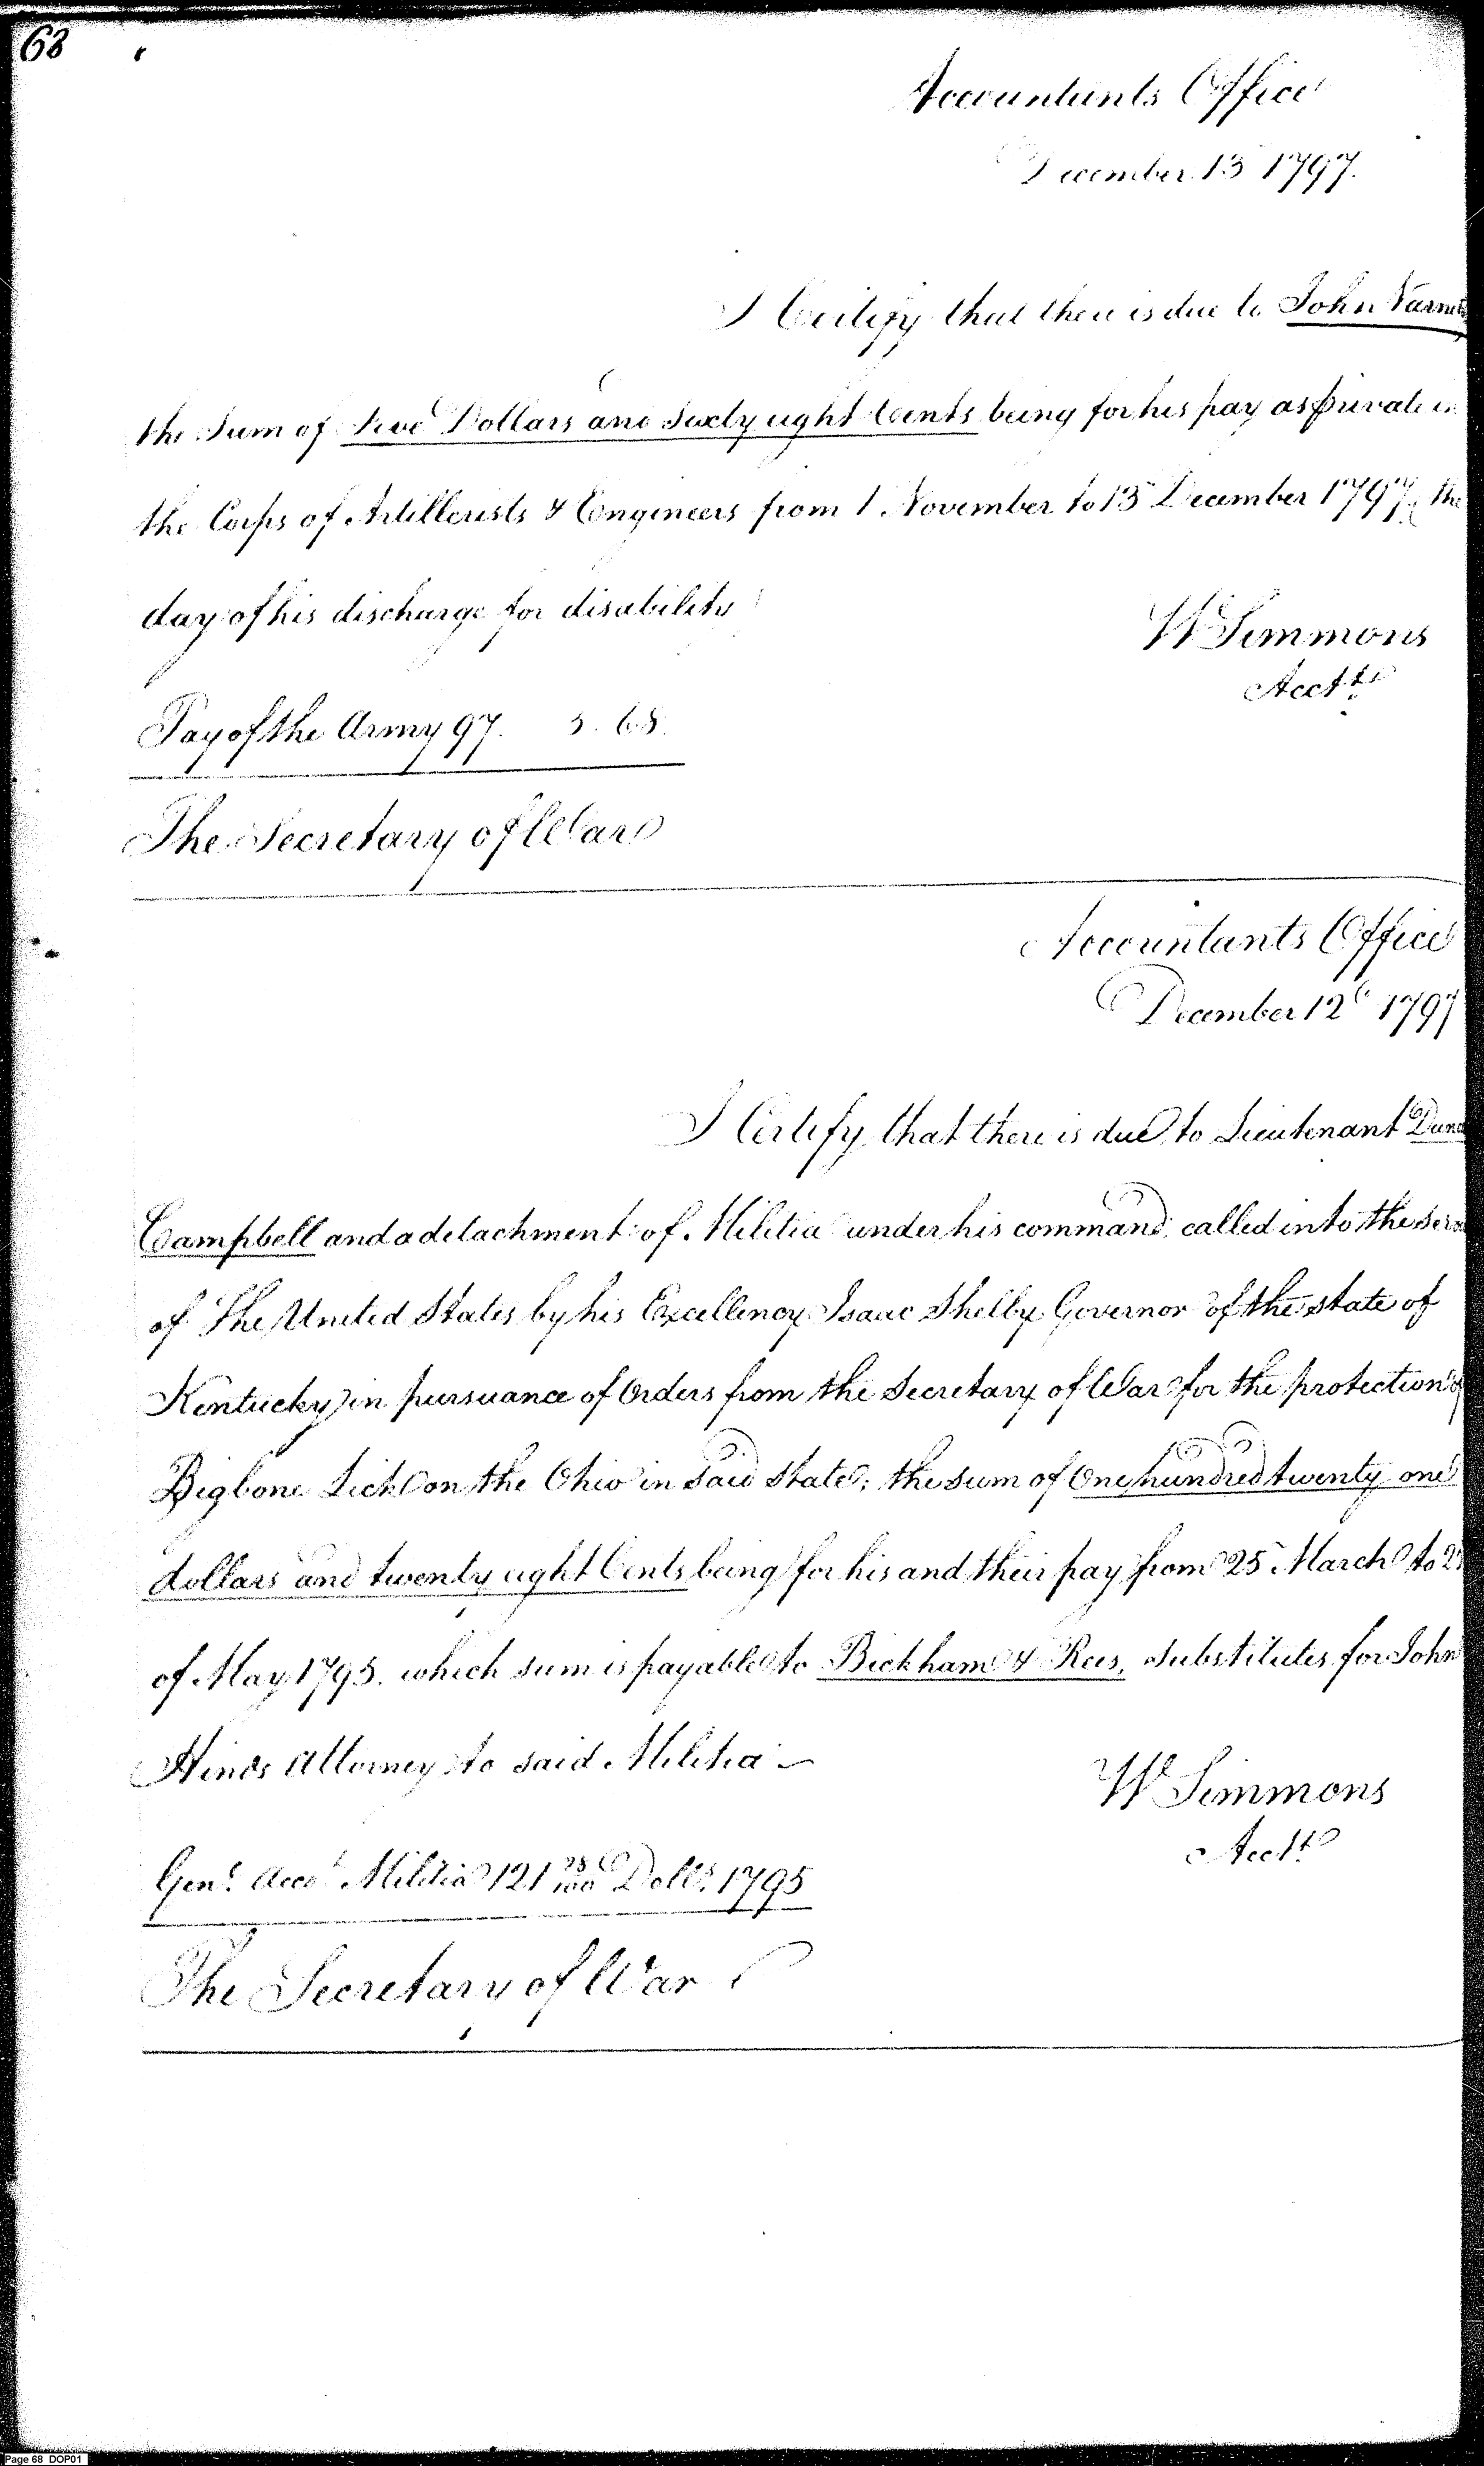 68
Accountants Office
December 13 1797.
I Certify that there is due to John
the Sum of five Dollars and Sixty eight Cents being for his pay as private in
the Corps of Artillerists & Engineers from 1 November to 13 December 1797, the
day of his discharge for disability
W Simmons
Acctt
Pay of the Army 97. 5. 68.
The Secretary of War
Accountants Office
December 12 1797
I Certify that there is due to Lieutenant
Campbell and a detachment of Militia under his command, called into the
of The United States by his Excellency Isaac Shelby Governor of the state of
Kentucky in pursuance of Orders from the Secretary of War for the protection of
Bigbone Lick on the Ohio in said State; the sum of One hundred twenty one
dollars and twenty eight Cents being for his and their pay from 25 March to
of May 1795. which sum is payable to Bickham & Rees, substitutes for John
Hinds Attorney to said Militia
W Simmons
Acctt
Genl. Acct Militia 121 28/100 Dolls. 1795
The Secretary of War
Page 68 DOP01